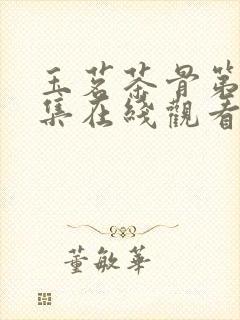 玉茗茶骨第
集在綫觀看
董敏華